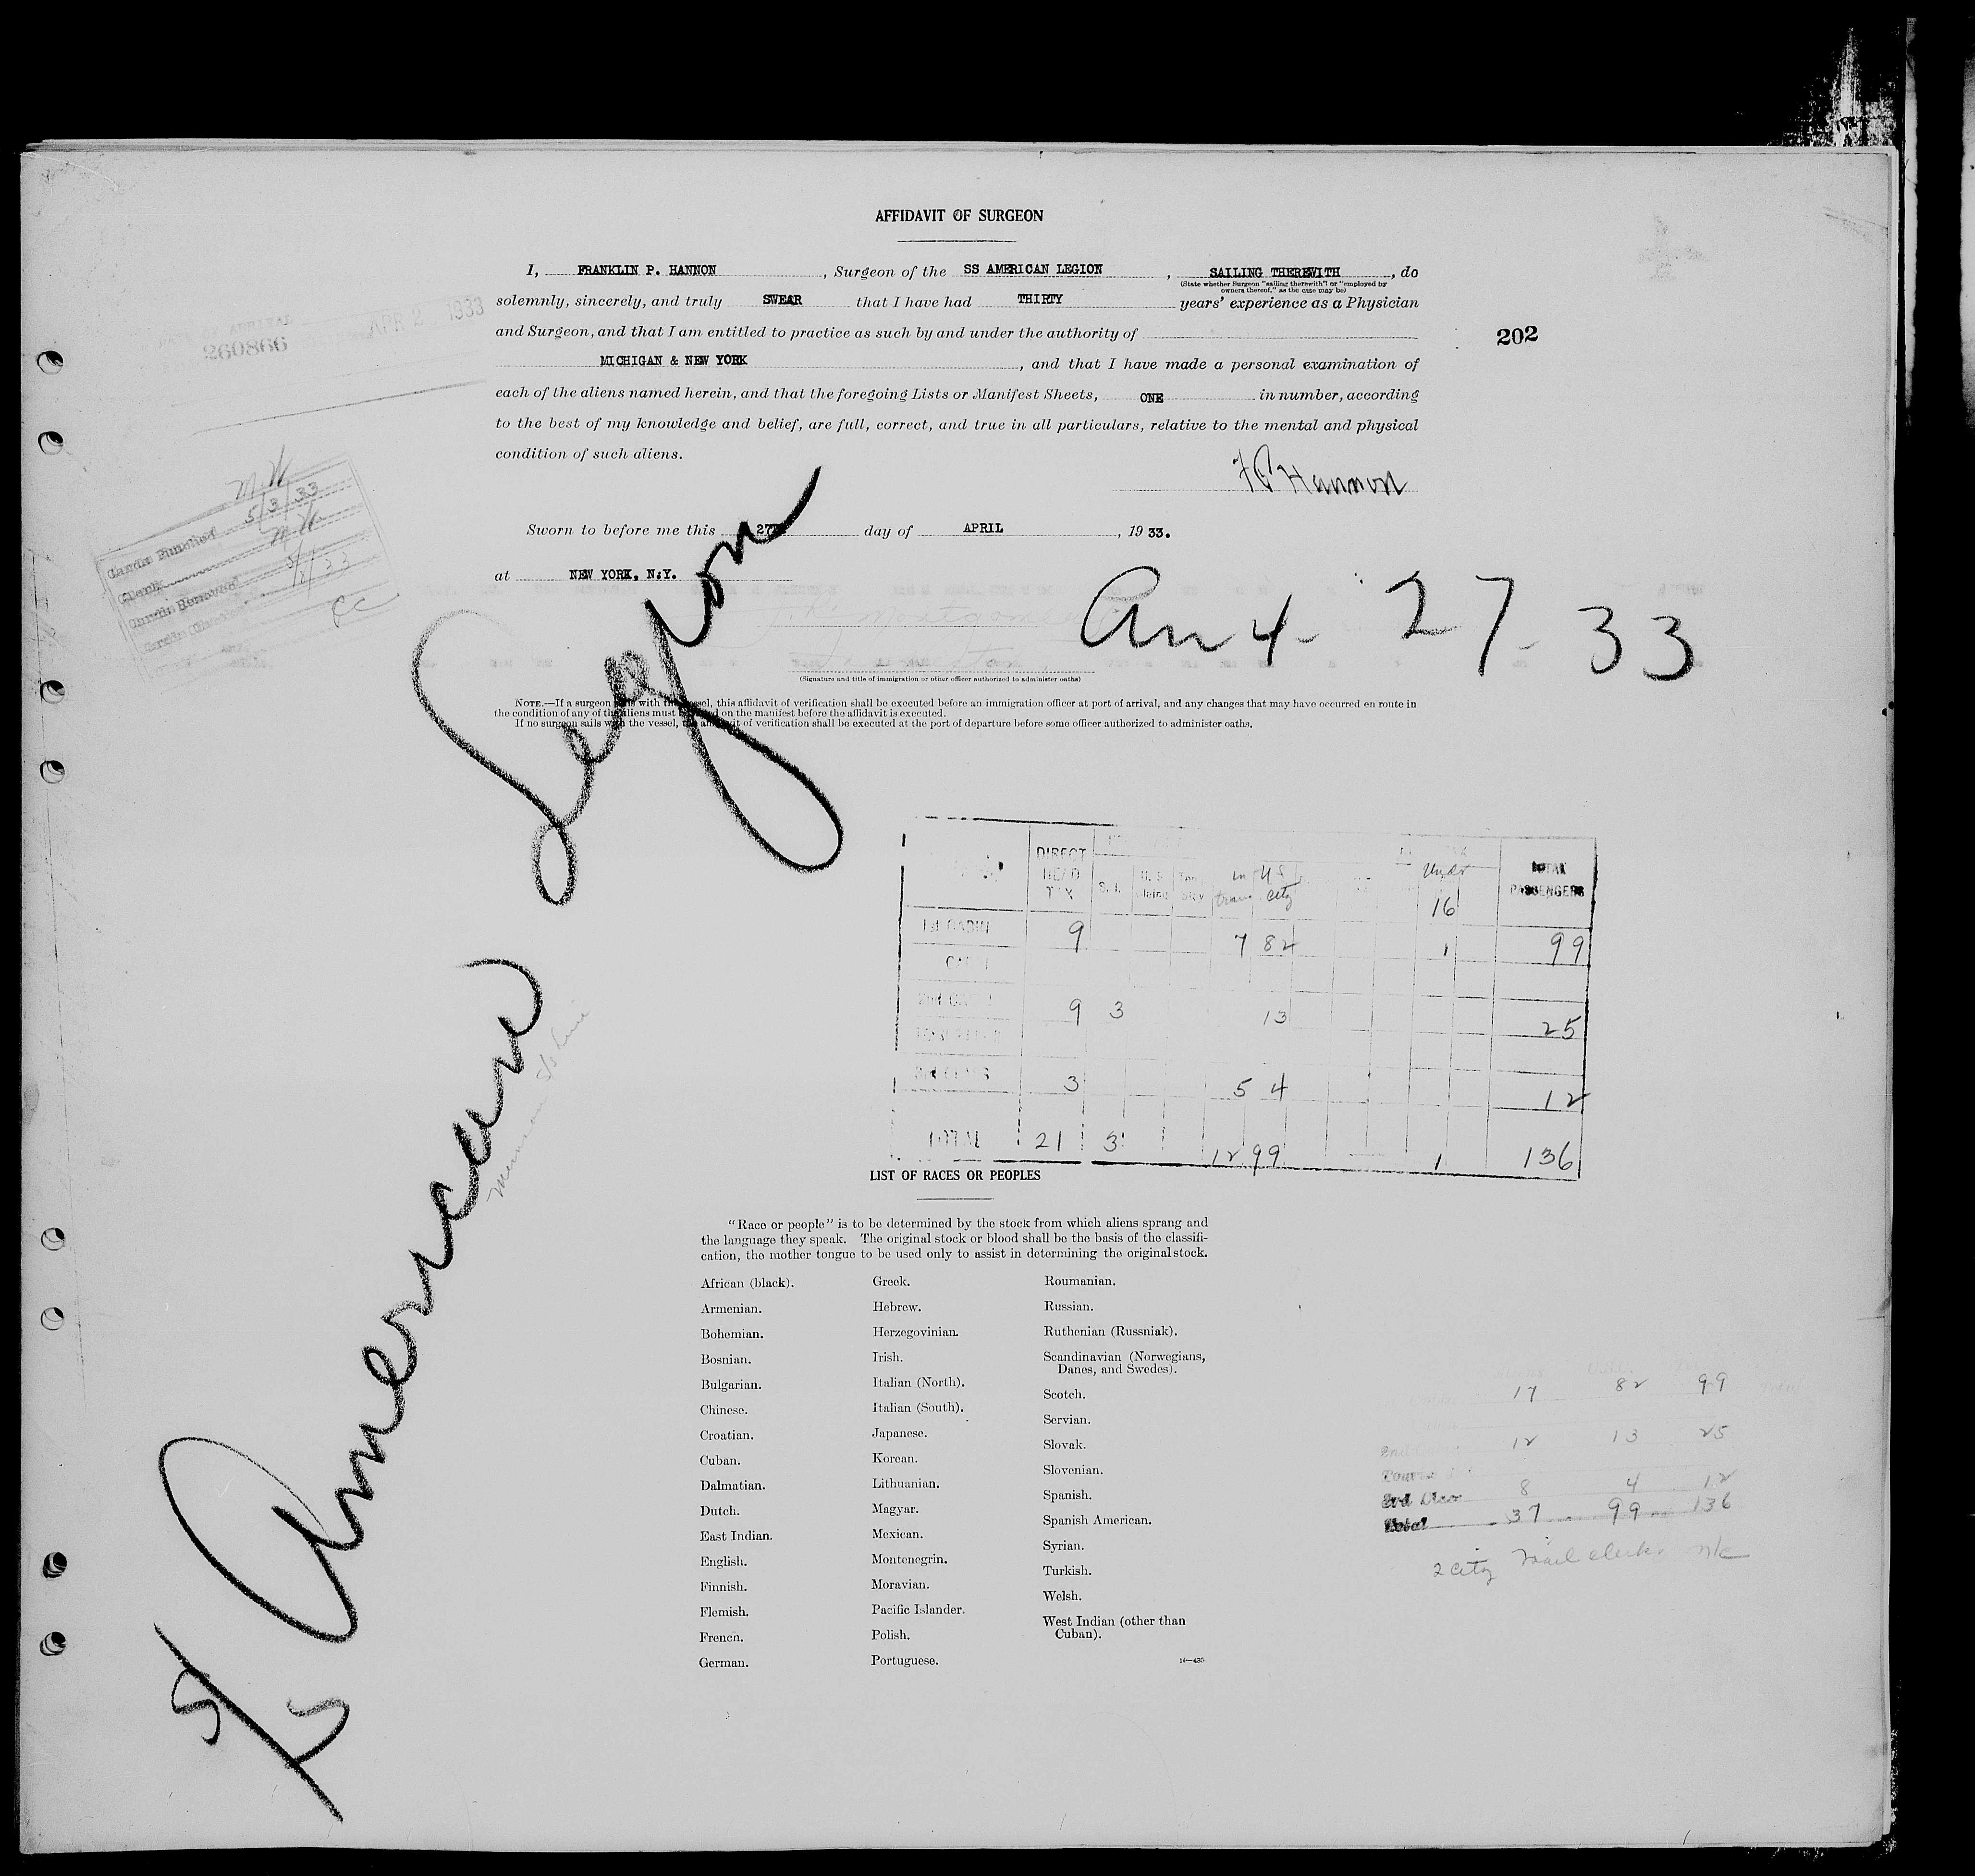 AFFIDAVIT OF SURGEON
I, FRANKLIN P. HANNON, Surgeon of the SS AMERICAN LEGION, SAILING THEREWITH, do
(State whether Surgeon "sailing therewith" or "employed by
owners thereof," as the case may be)
solemnly, sincerely, and truly SWEAR that I have had THIRTY years' experience as a Physician
and Surgeon, and that I am entitled to practice as such by and under the authority of
MICHIGAN & NEW YORK, and that I have made a personal examination of
each of the aliens named herein, and that the foregoing Lists or Manifest Sheets, ONE in number, according
to the best of my knowledge and belief, are full, correct, and true in all particulars, relative to the mental and physical
condition of such aliens.
F P Hannon
202
APR 2 1933
260866
Sworn to before me this 27 day of APRIL, 1933.
at NEW YORK, N.Y.
Arr 4-27-33
(Signature and title of immigration or other officer authorized to administer oaths)
NOTE.—If a surgeon sails with the vessel, this affidavit of verification shall be executed before an immigration officer at port of arrival, and any changes that may have occurred en route in
the condition of any of the aliens must be noted on the manifest before the affidavit is executed.
If no surgeon sails with the vessel, the affidavit of verification shall be executed at the port of departure before some officer authorized to administer oaths.
Cards Punched 5/3/33
Clerk
SS American Legion
Munson S/S Line
DIRECT HEAD TAX
in trans
U S City
Under 16
TOTAL PASSENGERS
1st CABIN 9 7 82 1 99
2nd 9 3 13 25
3rd CLASS 3 5 4 12
TOTAL 21 3 12 99 1 136
LIST OF RACES OR PEOPLES
"Race or people" is to be determined by the stock from which aliens sprang and
the language they speak. The original stock or blood shall be the basis of the classifi-
cation, the mother tongue to be used only to assist in determining the original stock.
African (black).
Armenian.
Bohemian.
Bosnian.
Bulgarian.
Chinese.
Croatian.
Cuban.
Dalmatian.
Dutch.
East Indian.
English.
Finnish.
Flemish.
French.
German.
Greek.
Hebrew.
Herzegovinian.
Irish.
Italian (North).
Italian (South).
Japanese.
Korean.
Lithuanian.
Magyar.
Mexican.
Montenegrin.
Moravian.
Pacific Islander.
Polish.
Portuguese.
Roumanian.
Russian.
Ruthenian (Russniak).
Scandinavian (Norwegians,
Danes, and Swedes).
Scotch.
Servian.
Slovak.
Slovenian.
Spanish.
Spanish American.
Syrian.
Turkish.
Welsh.
West Indian (other than
Cuban).
14—435
17 82 99
2nd 12 13 25
3rd Class 8 4 12
Total 37 99 136
2 city mail clerks